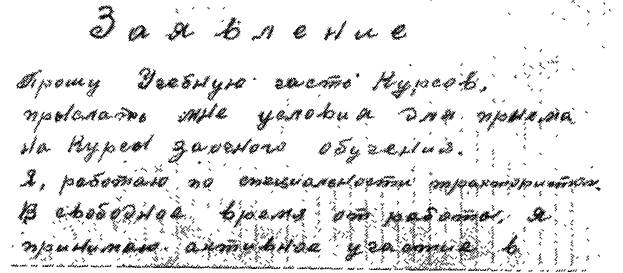 Заявление
Прошу Учебную часть Курсов,
прыслать мне условия для приема
на Курсы заочного обучения.
Я, работаю по специальности трактористки.
В свободное время от работы, я
принимаю активное участие в